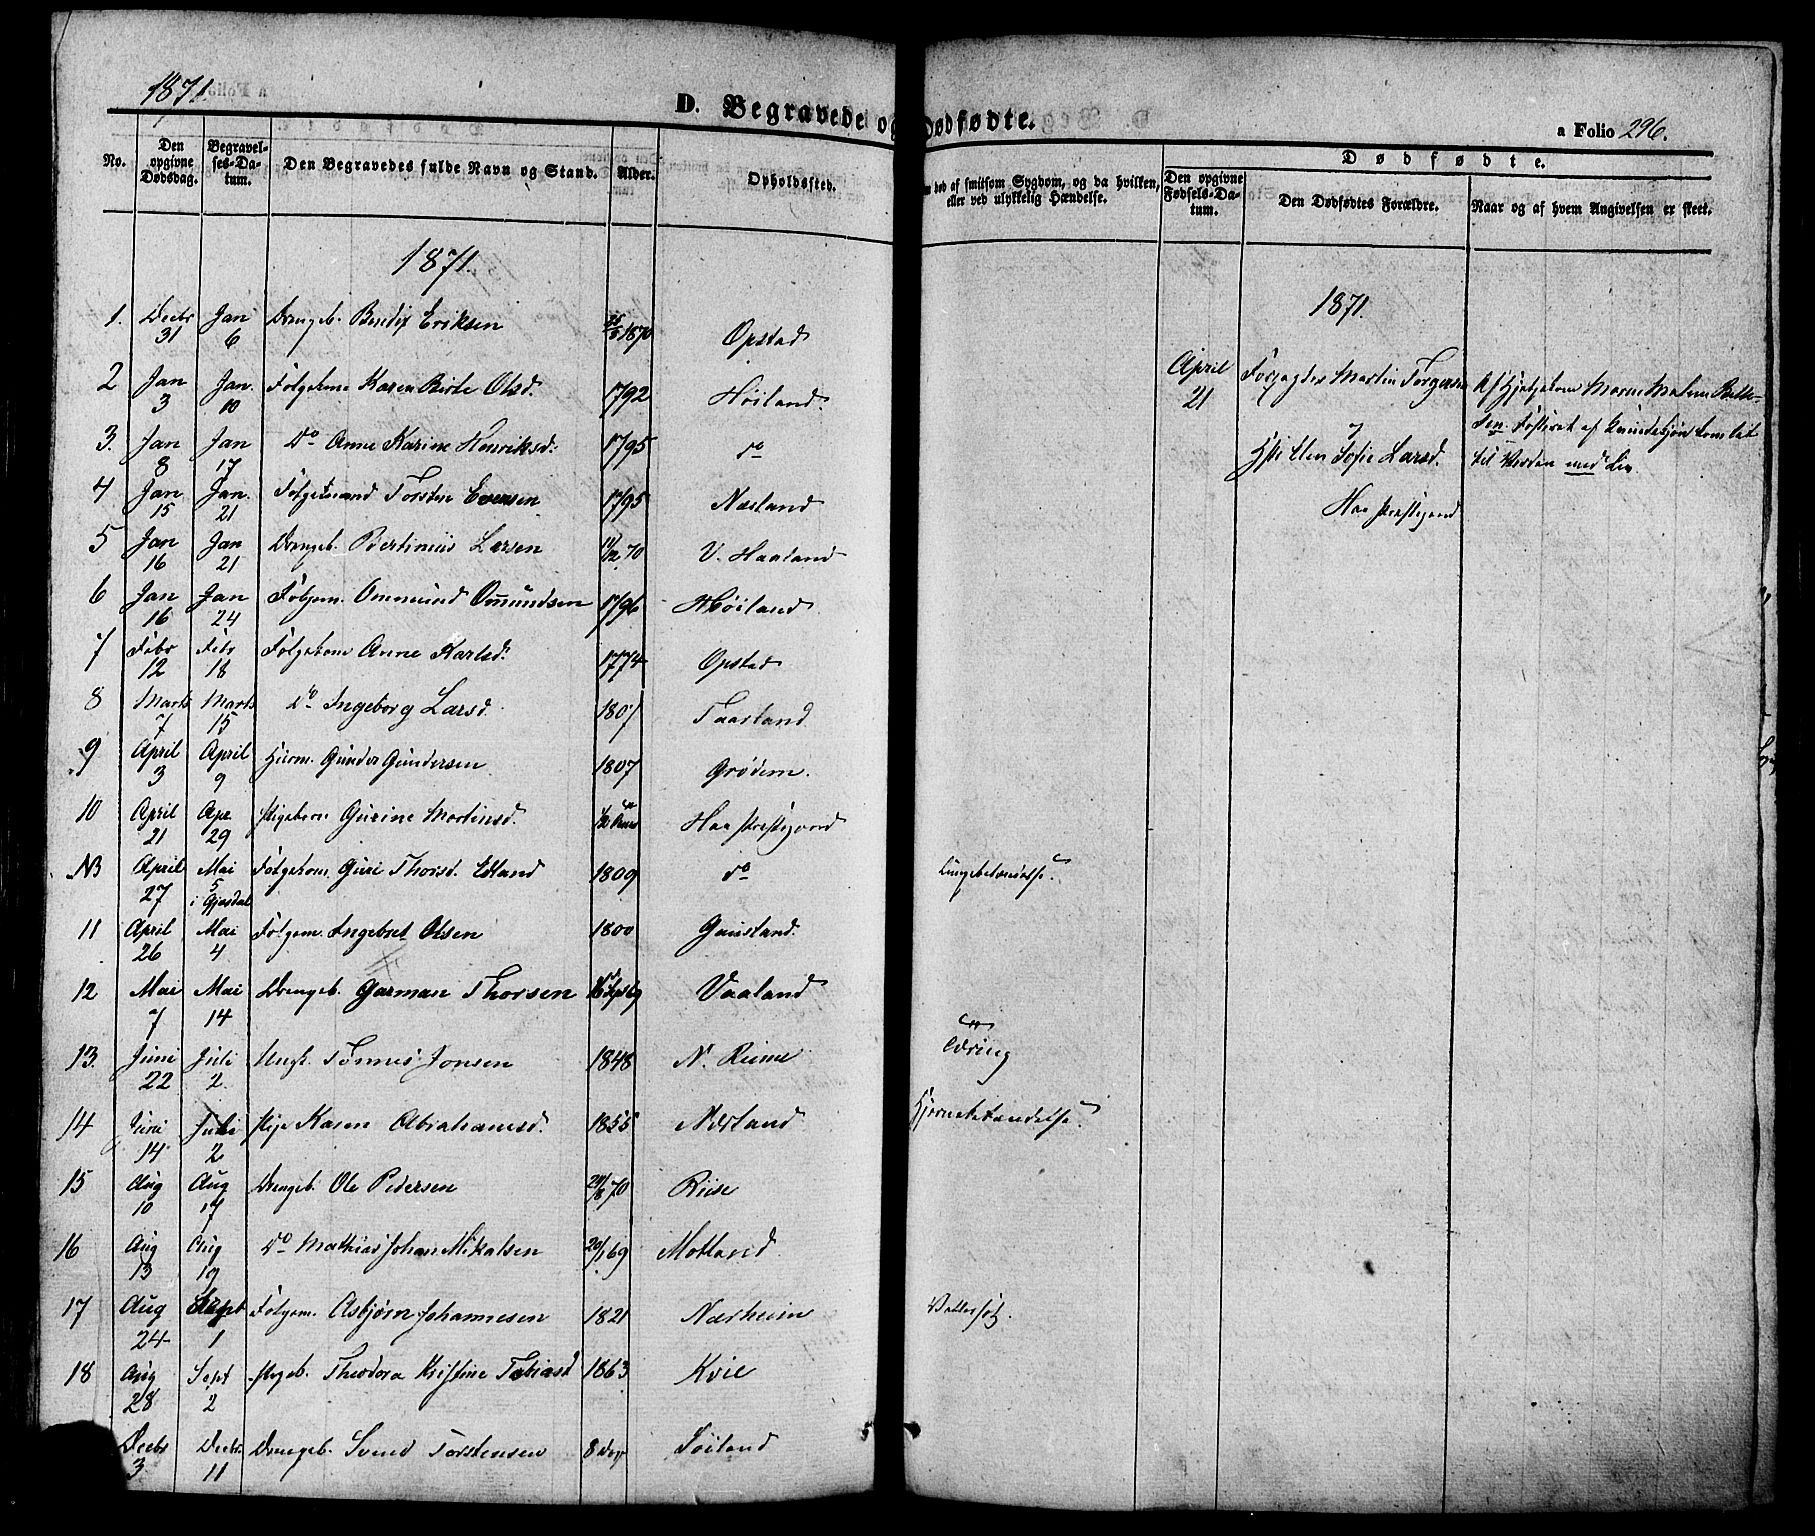 1871.
D. Begravede og Dødfødte.
a Folio 296.
No.
Den opgivne Dødsdag.
Begravelses-Datum.
Den Begravedes fulde Navn og Stand.
Alder.
Opholdssted.
død af smitsom Sygdom, og da hvilken,
eller ved ulykkelig Hændelse.
Dødfødte.
Den opgivne Fødsels-Datum.
Den Dødfødtes Forældre.
Naar og af hvem Angivelsen er skeet.
1871.
1. Decbr 31 Jan 6 Drengeb. Bendix Eriksen 1870 Opstad
2 Jan 3 Jan. 10 Følgekone Karen Birte Olsd. 1792 Høiland.
3. Jan 8 Jan 17 Do Anne Karine Henriksd. 1795 do
4 Jan 15 Jan. 21 Følgemand Torsten Evensen 1795 Næsland
5 Jan 16 Jan 21 Drengeb. Bertinius Larsen 11/12 70 V. Haaland
6 Jan 16 Jan 24 Følgem. Ommund Omundsen 1796 Høiland
7 Febr 12 Febr 18 Følgekone Anne Karlsd. 1774 Opstad
8 Marts 7 Marts 15 Do Ingeborg Larsd. 1807 Taarland
9 April 3 April 9 Huusm. Gunder Gundersen 1807 Grødem.
10 April 21 Apr. 29 Pigebarn Gurine Martinsd. 1/2 Haa Præstegaard
NB April 27 Mai 5 i Gjæsdal Følgekone Guri Thorsd. Edland 1809 do Lungebetændelse.
11 April 26 Mai 4 Følgem. Ingebret Olsen 1800 Gausland.
12 Mai 7 Mai 14 Drengeb. Garman Thorsen Vaaland
13. Juni 22 Juli 2. Ungk. Tønnes Jonsen 1848 N. Reime Tæring
14 Juni 14 Juli 2 Pige Karen Abrahamsd. 1855 Nærland Hjernebetændelse.
15 Aug 10 Aug 17 Drengeb. Ole Pedersen 29/8 70 Riise
16 Aug 13 Aug 19 Do Mathias Johan Mikalsen 20/1 69 Motland
17 Aug 24 Sept 1 Følgem. Asbjørn Johannesen 1821 Nærheim Vattersot.
18 Aug 28 Sept 2 Pigeb. Theodora Kristine Tobiasd 1863 Kvie
Decbr 3 Decbr. 11 Drengeb. Svend Torstensen 8 Dage Høiland
1871.
April 21
Forpagter Martin Torgersen
og
Hst. Ellen Sofie Larsd.
Haa Præstegaard
Af Hjelpekone Maren Malene
Fosteret af Kvindekjøn kom let
til Verden med Liv.